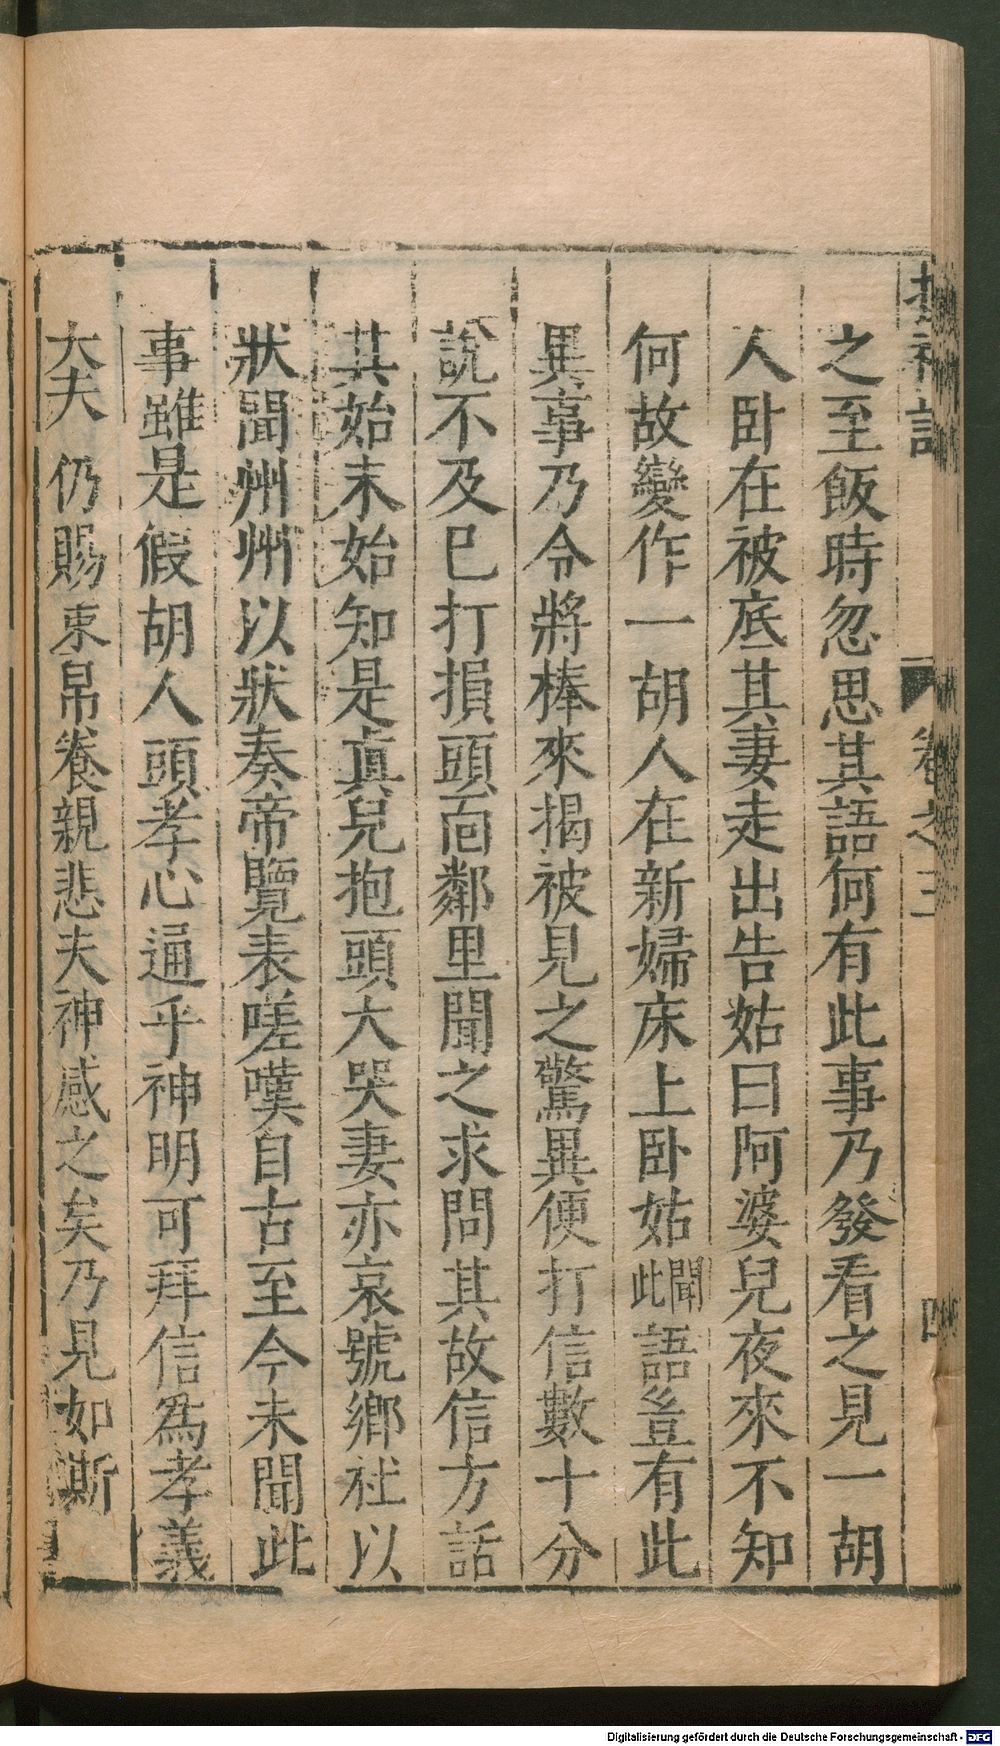 搜神記 卷之三 四
之至飯時忽思其語何有此事乃發看之見一胡
人卧在被底其妻走出告姑曰阿婆兒夜來不知
何故變作一胡人在新婦床上卧姑聞此語豈有此
異事乃令將棒來揭被見之驚異便打信數十分
說不及已打損頭面鄰里聞之求問其故信方話
其始末始知是眞兒抱頭大哭妻亦哀號鄉社以
狀聞州州以狀奏帝覽表嗟嘆自古至今未聞此
事雖是假胡人頭孝心通乎神明可拜信為孝義
大夫仍賜束帛養親悲夫神感之矣乃見如斯
Digitalisierung gefördert durch die Deutsche Forschungsgemeinschaft - DFG